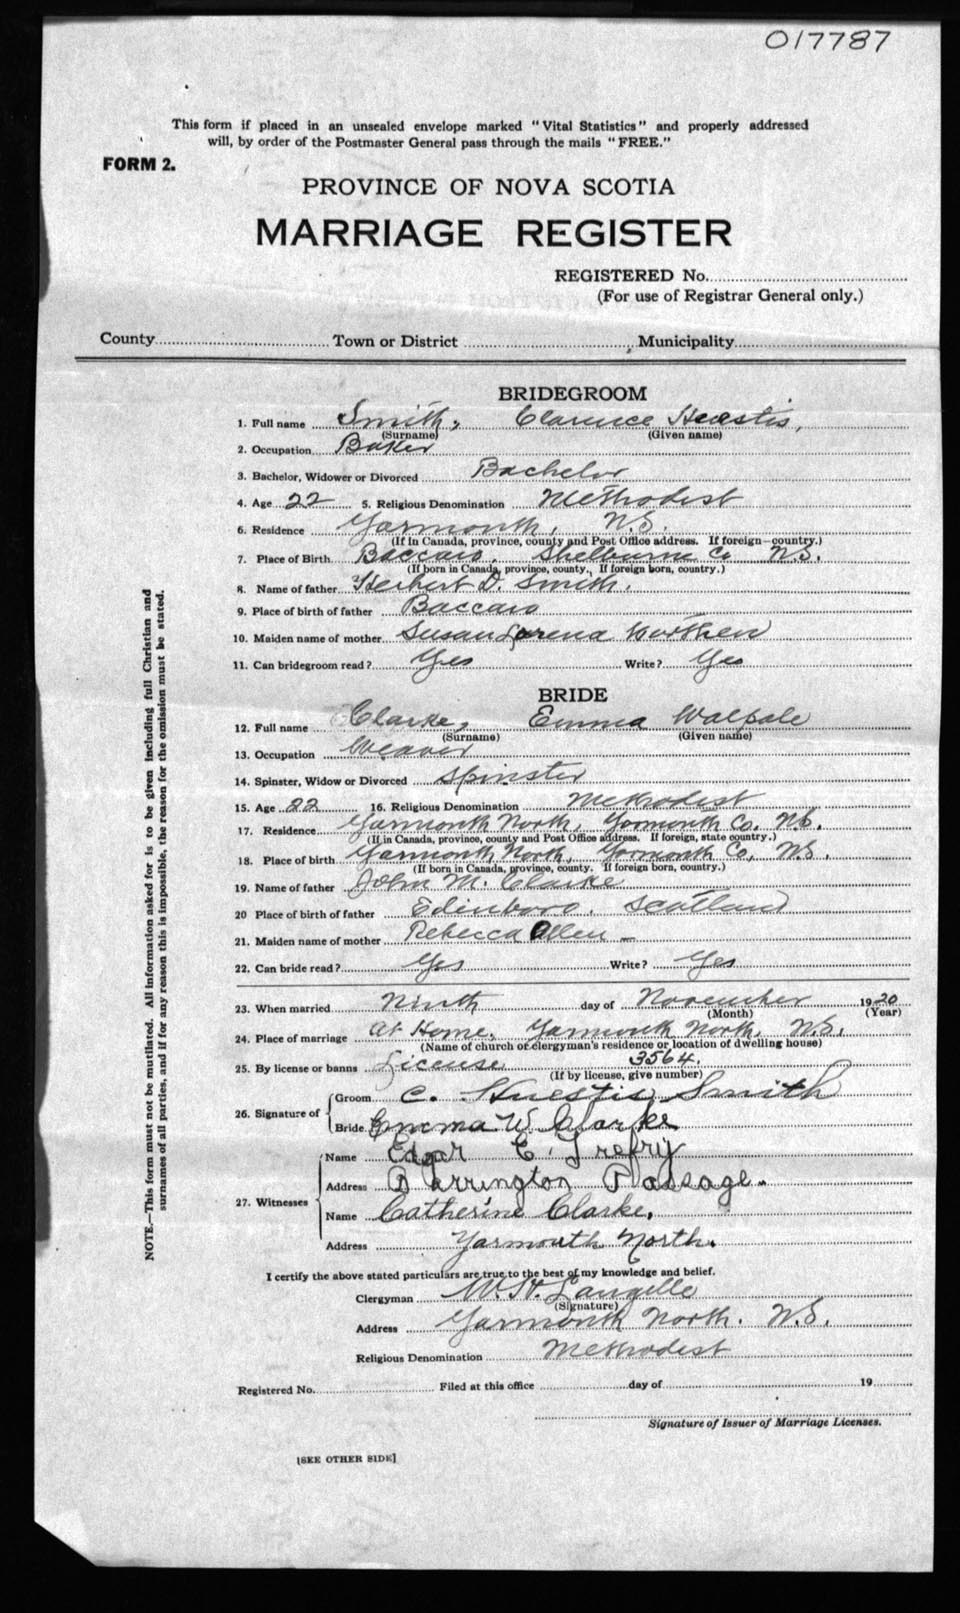 017787
This form if placed in an unsealed envelope marked "Vital Statistics" and properly addressed
will, by order of the Postmaster General pass through the mails "FREE."
FORM 2.
PROVINCE OF NOVA SCOTIA
MARRIAGE REGISTER
REGISTERED No.
(For use of Registrar General only.)
County Town or District , Municipality
BRIDEGROOM
1. Full name Smith, Clarence
(Surname) (Given name)
2. Occupation Baker
3. Bachelor, Widower or Divorced Bachelor
4. Age 22 5. Religious Denomination Methodist
6. Residence Yarmouth, N.S.
(If in Canada, province, county and Post Office address. If foreign—country.)
7. Place of Birth Baccaro, Shelburne Co N.S.
(If born in Canada, province, county. If foreign born, country.)
8. Name of father Herbert D. Smith.
9. Place of birth of father Baccaro
10. Maiden name of mother Susan Lorena
11. Can bridegroom read? Yes Write? Yes
BRIDE
12. Full name Clarke, Emma Walpole
(Surname) (Given name)
13. Occupation Weaver
14. Spinster, Widow or Divorced Spinster
15. Age 22 16. Religious Denomination Methodist
17. Residence Yarmouth North, Yarmouth Co. N.S.
(If in Canada, province, county and Post Office address. If foreign, state country.)
18. Place of birth Yarmouth North, Yarmouth Co, N.S.
(If born in Canada, province, county. If foreign born, country.)
19. Name of father John M. Clarke
20 Place of birth of father Edinboro, Scotland
21. Maiden name of mother Rebecca Allen –
22. Can bride read? Yes Write? Yes
23. When married Ninth day of November 1920
(Month) (Year)
24. Place of marriage At Home, Yarmouth North, N.S.
(Name of church or clergyman's residence or location of dwelling house)
25. By license or banns License 3564.
(If by license, give number)
26. Signature of Groom C. Huestis Smith
Bride Emma W. Clarke
27. Witnesses Name Edgar C. Trefry
Address Barrington Passage.
Name Catherine Clarke,
Address Yarmouth North.
I certify the above stated particulars are true to the best of my knowledge and belief.
Clergyman W. H. Langille
(Signature)
Address Yarmouth North. N.S.
Religious Denomination Methodist
Registered No. Filed at this office day of 19
Signature of Issuer of Marriage Licenses.
[SEE OTHER SIDE]
NOTE.—This form must not be mutilated. All information asked for is to be given including full Christian and
surnames of all parties, and if for any reason this is impossible, the reason for the omission must be stated.